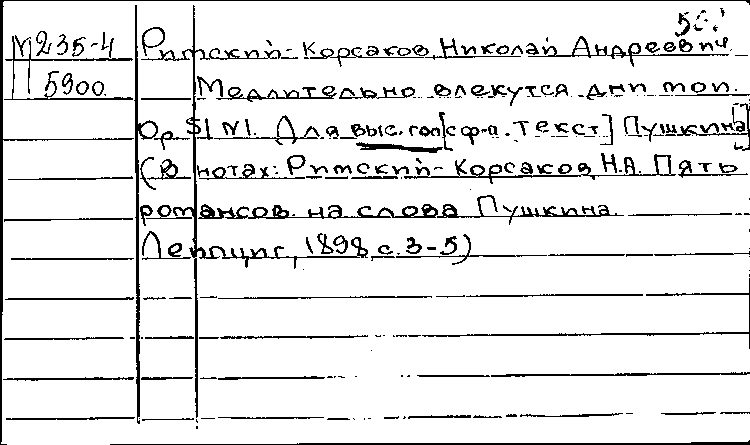 М235-4
П5900
Римский-Корсаков, Николай Андреевич
Медлительно влекутся дни мои.
Op. 51 №1. Для выс. гол [с ф-п. Текст] Пушкин[а]
(В нотах: Римский-Корсаков, Н.А. Пять
романсов на слова Пушкина.
Лейпциг, 1898, с. 3-5)